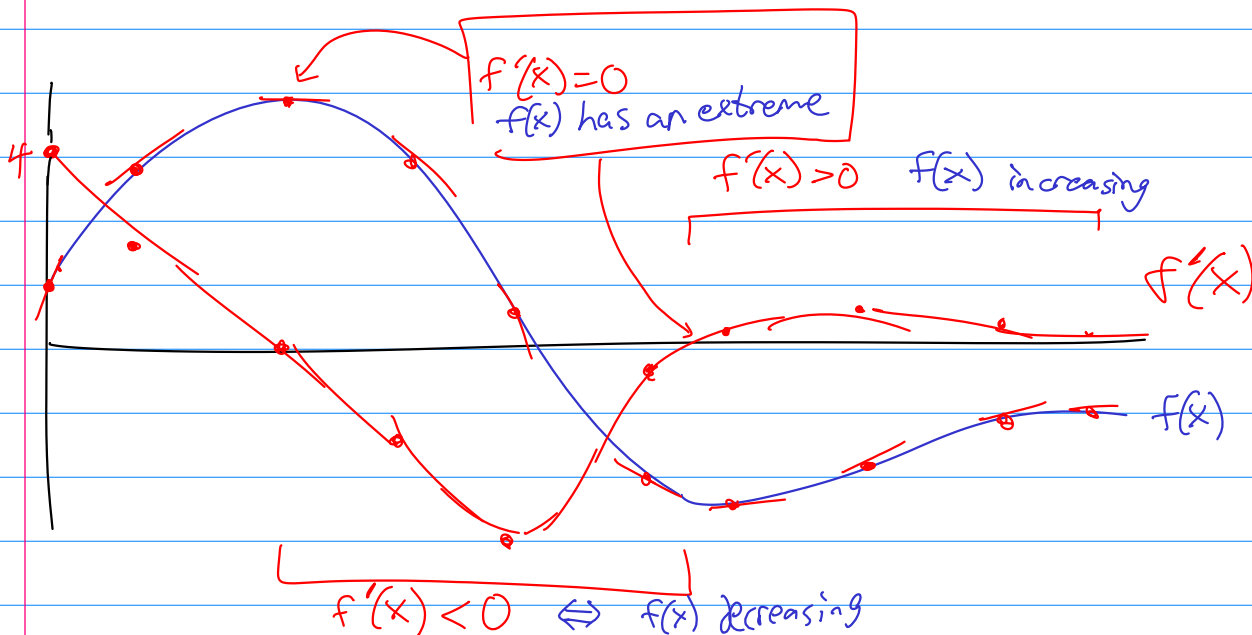 f'(x)=0
f(x) has an extreme
4
f'(x)>0 f(x) increasing
f'(x)
f(x)
f'(x)<0 ⇔ f(x) decreasing